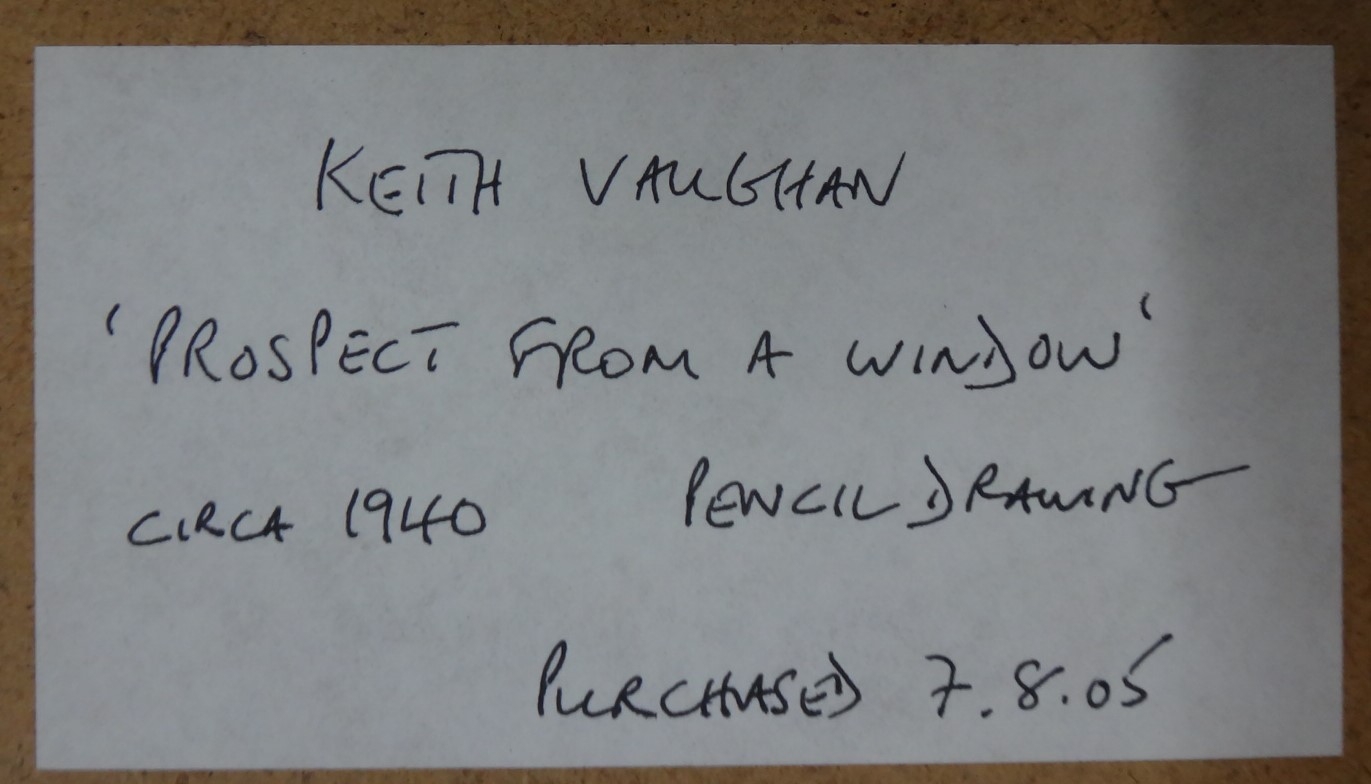 KEITH VAUGHAN
'PROSPECT FROM A WINDOW'
CIRCA 1940 PENCIL DRAWING
PURCHASED 7.8.05